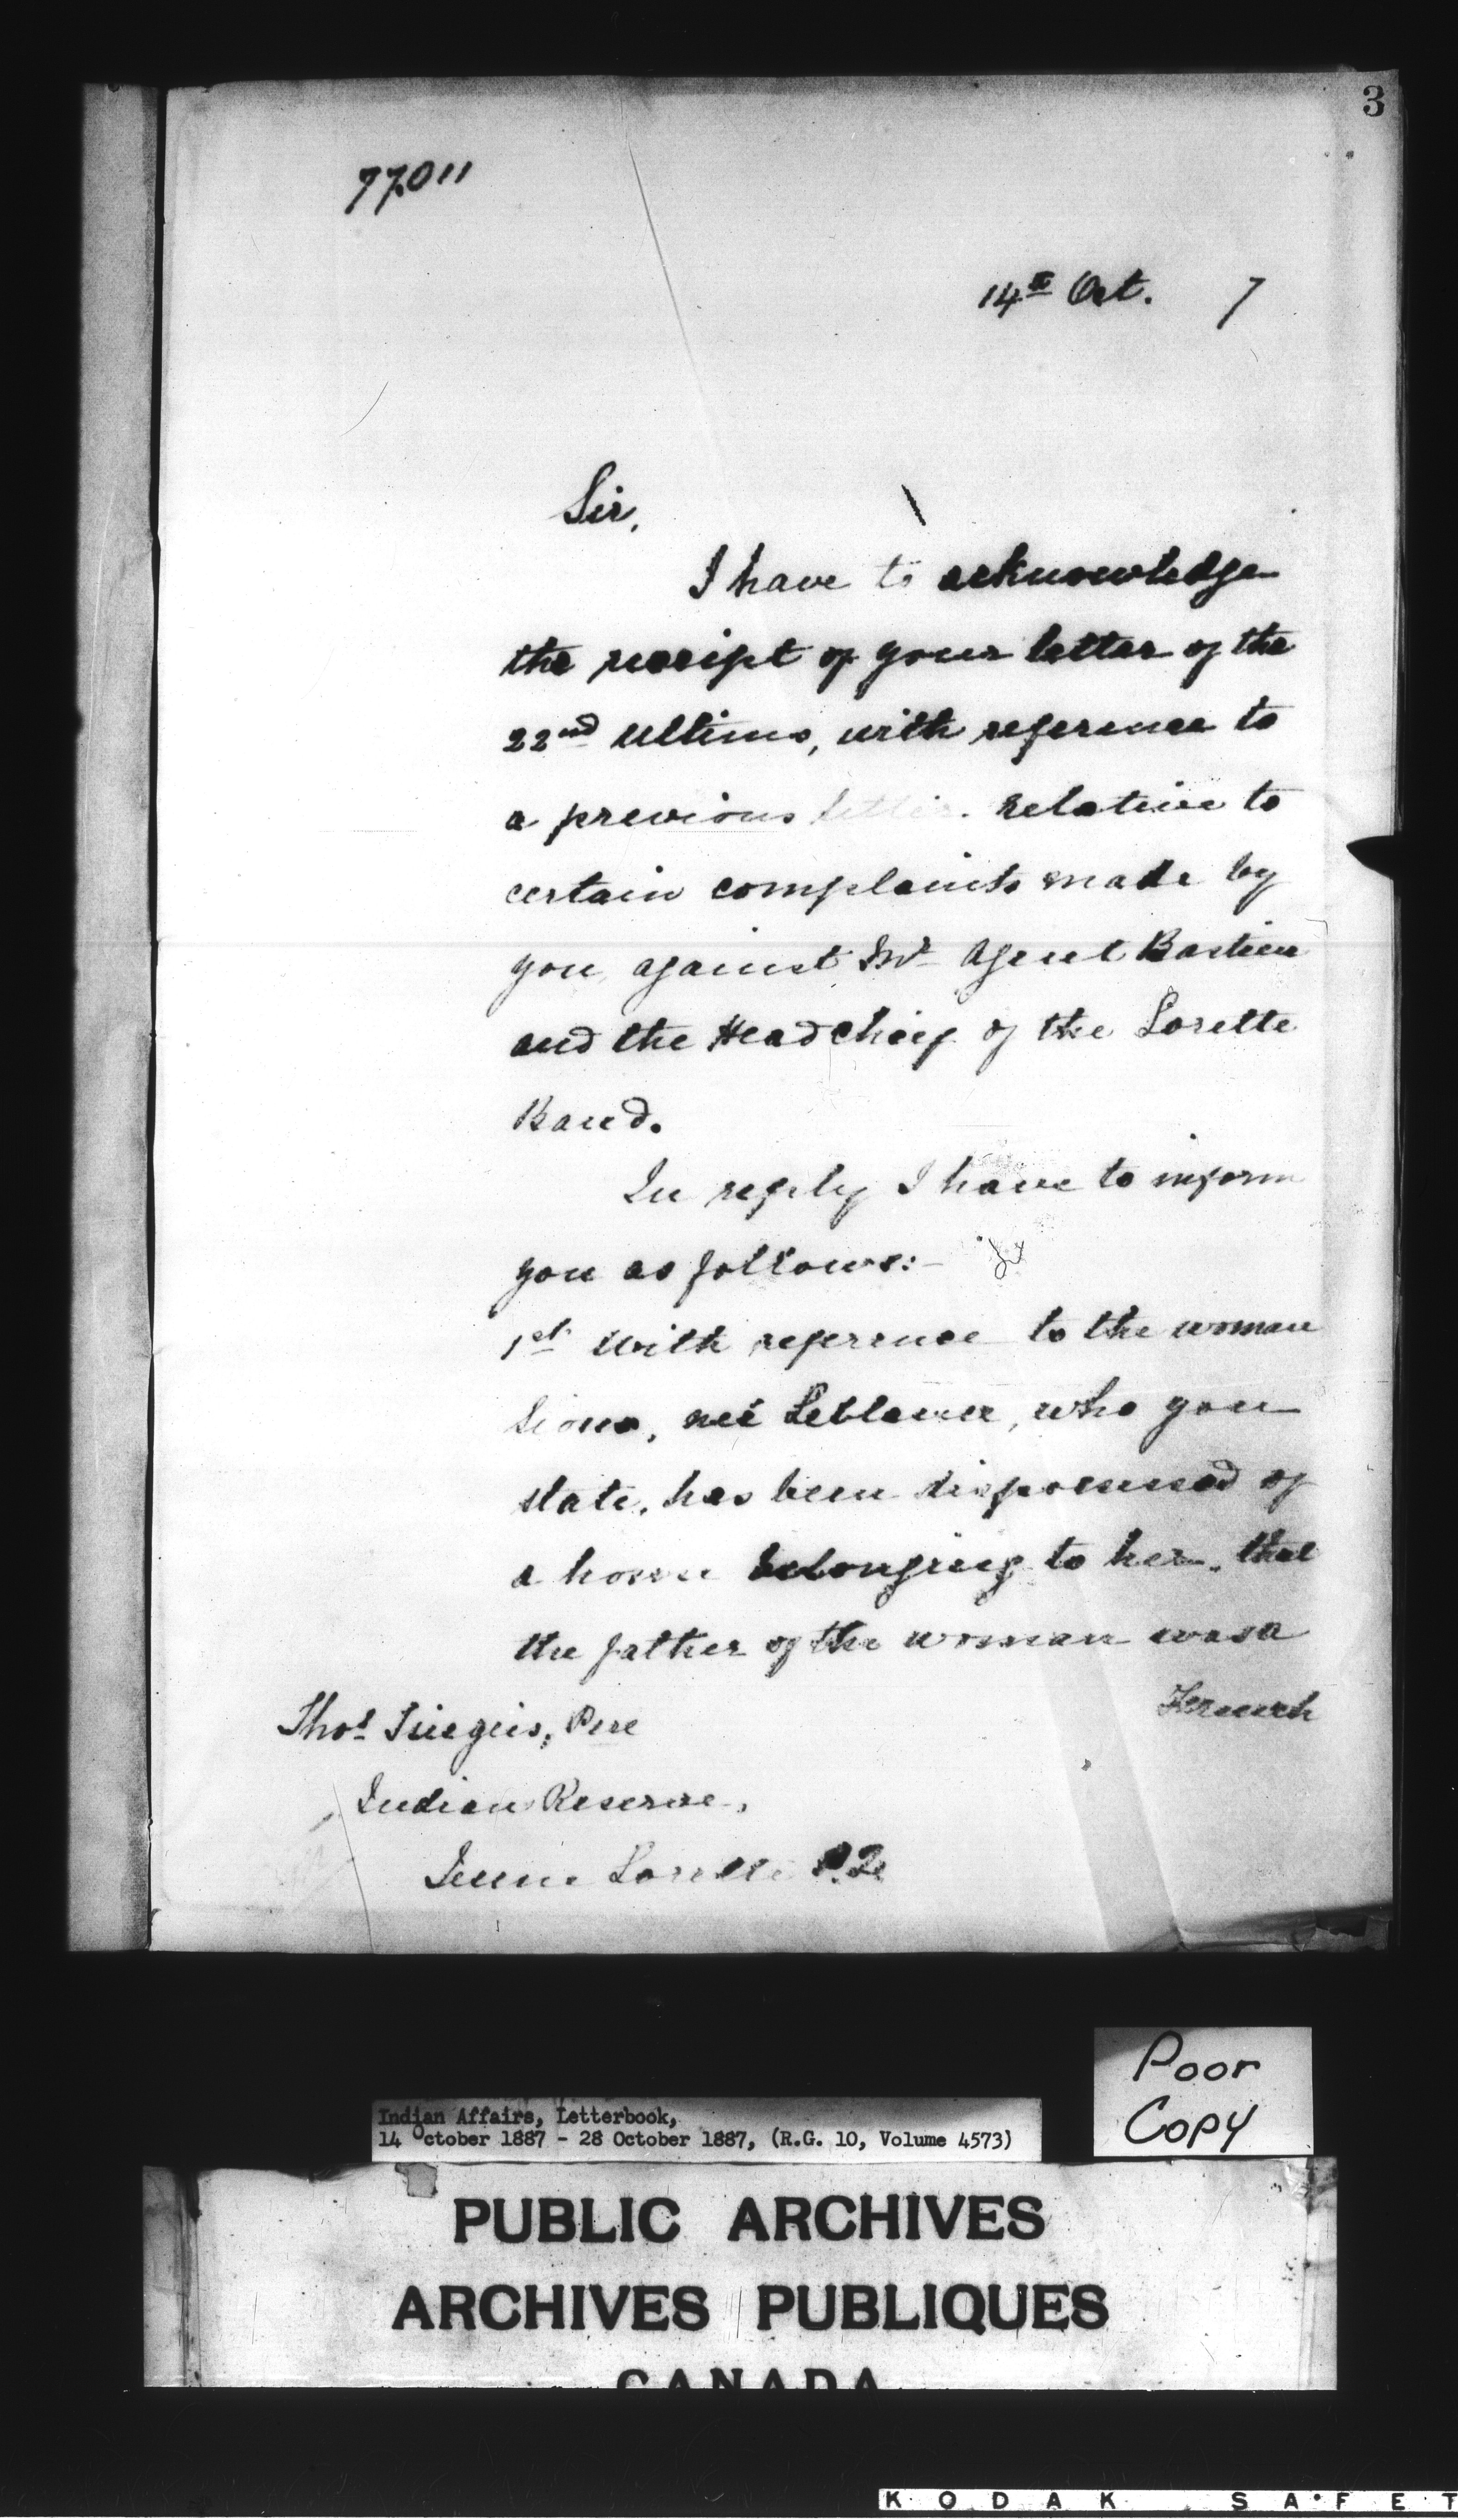 3
77,011
14th Oct. 7
Sir,
I have to acknowledge
the receipt of your letter of the
22nd Ultimo, with reference to
a previous letter relative to
certain complaints made by
you against Mr Agent Bastien
and the Head Chief of the Lorette
Band.
In reply I have to inform
you as follows:-
1st With reference to the woman
Sioui, neé Leblanc, who you
state, has been dispossessed of
a house belonging to her, that
the father of the woman was a
French
Thos
Indian Reserve,
Jeune Lorette P.Q.
Poor
Copy
Indian Affairs, Letterbook,
14 October 1887 - 28 October 1887, (R.G. 10, Volume 4573)
PUBLIC ARCHIVES
ARCHIVES PUBLIQUES
CANADA
KODAK SAFET